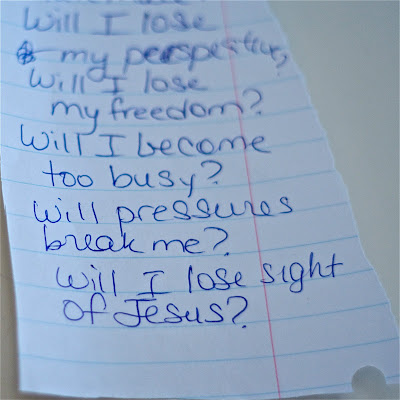 Will I lose
my perspective?
Will I lose
my freedom?
Will I become
too busy?
Will pressures
break me?
Will I lose sight
of Jesus?